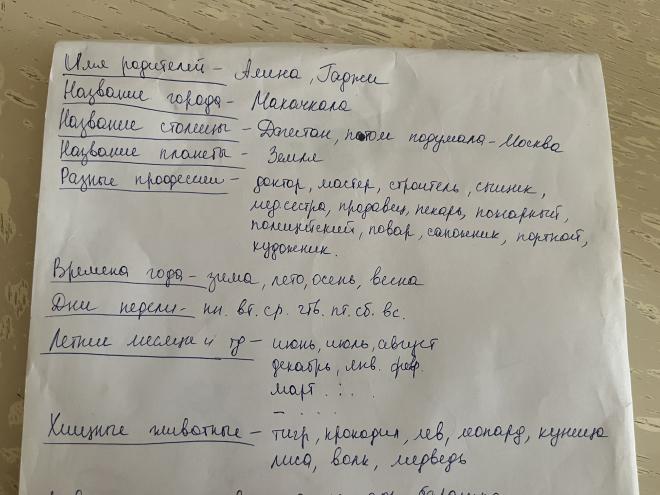 Имя родителей – Амина, Гаджи
Название города – Махачкала
Название столицы – Дагестан, потом подумала – Москва
Название планеты – Земля
Разные профессии – доктор, мастер, строитель, сыщик,
медсестра, продавец, пекарь, пожарный,
полицейский, повар, сапожник, портной,
художник.
Времена года – зима, лето, осень, весна
Дни недели – пн. вт. ср. чтв. пт. сб. вс.
Летние месяца и тд – июнь, июль, август
декабрь, янв. фев.
март . . .
– . . . .
Хищные животные – тигр, крокодил, лев, леопард, куница
лиса, волк, медведь